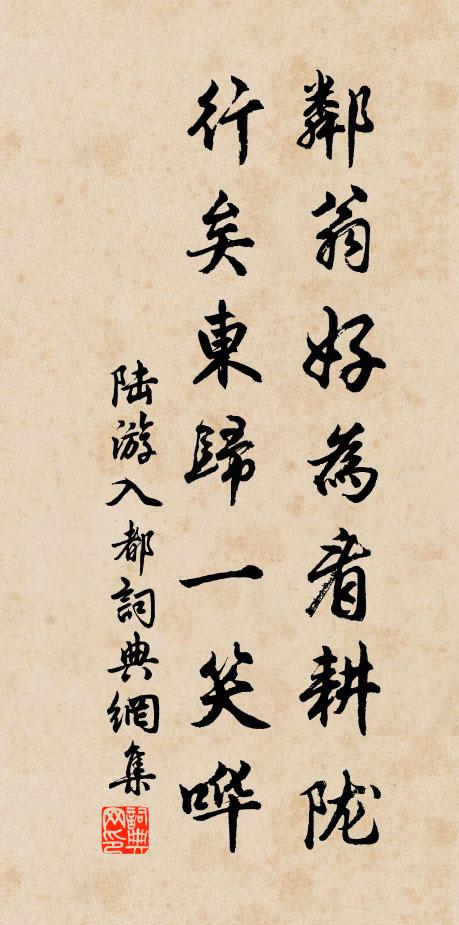 鄰翁好為看耕陇
行矣東歸一笑哗
陆游入都詞典網集
詞典网印